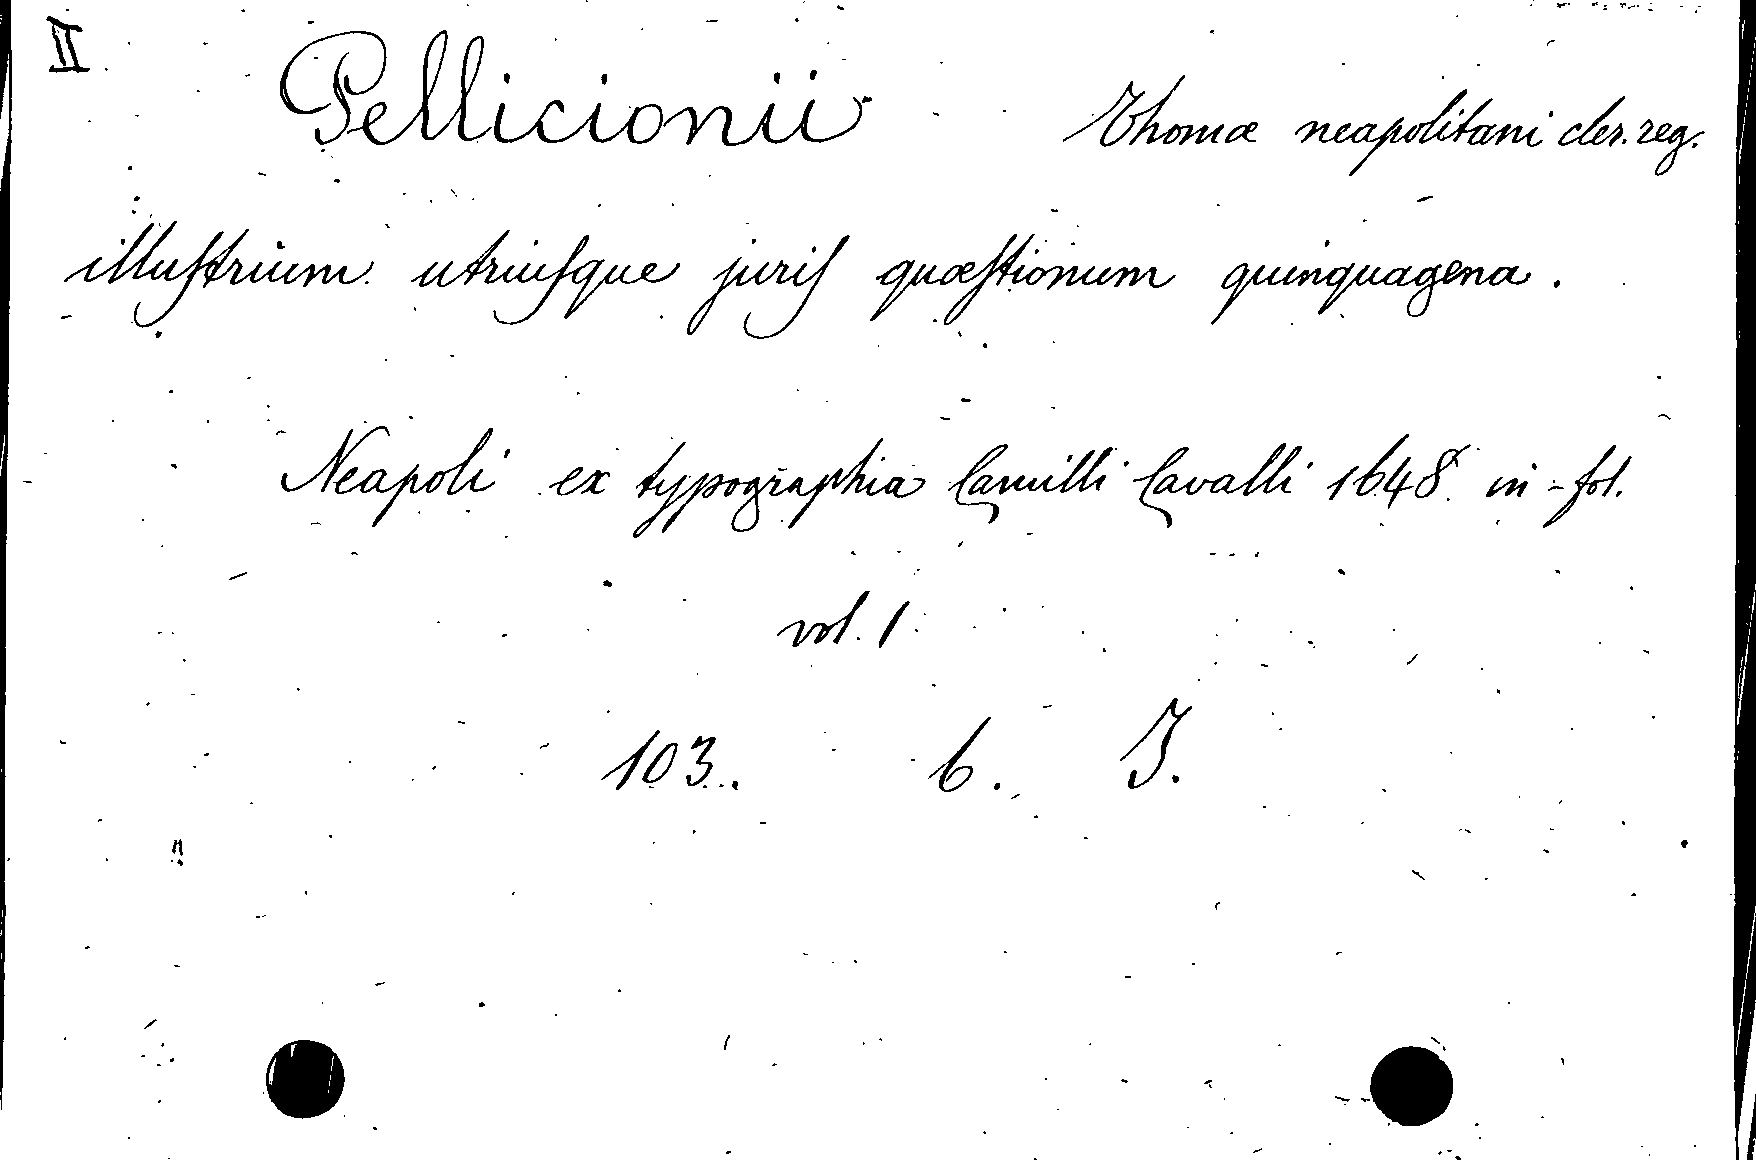 II
Pellicionii Thomæ neapolitani cler. reg.
illuſtrium utriuſque juriſ quæſtionum quinquagena.
Neapoli ex typographia Camilli Cavalli 1648 in-fol.
vol. 1
103. 6. J.